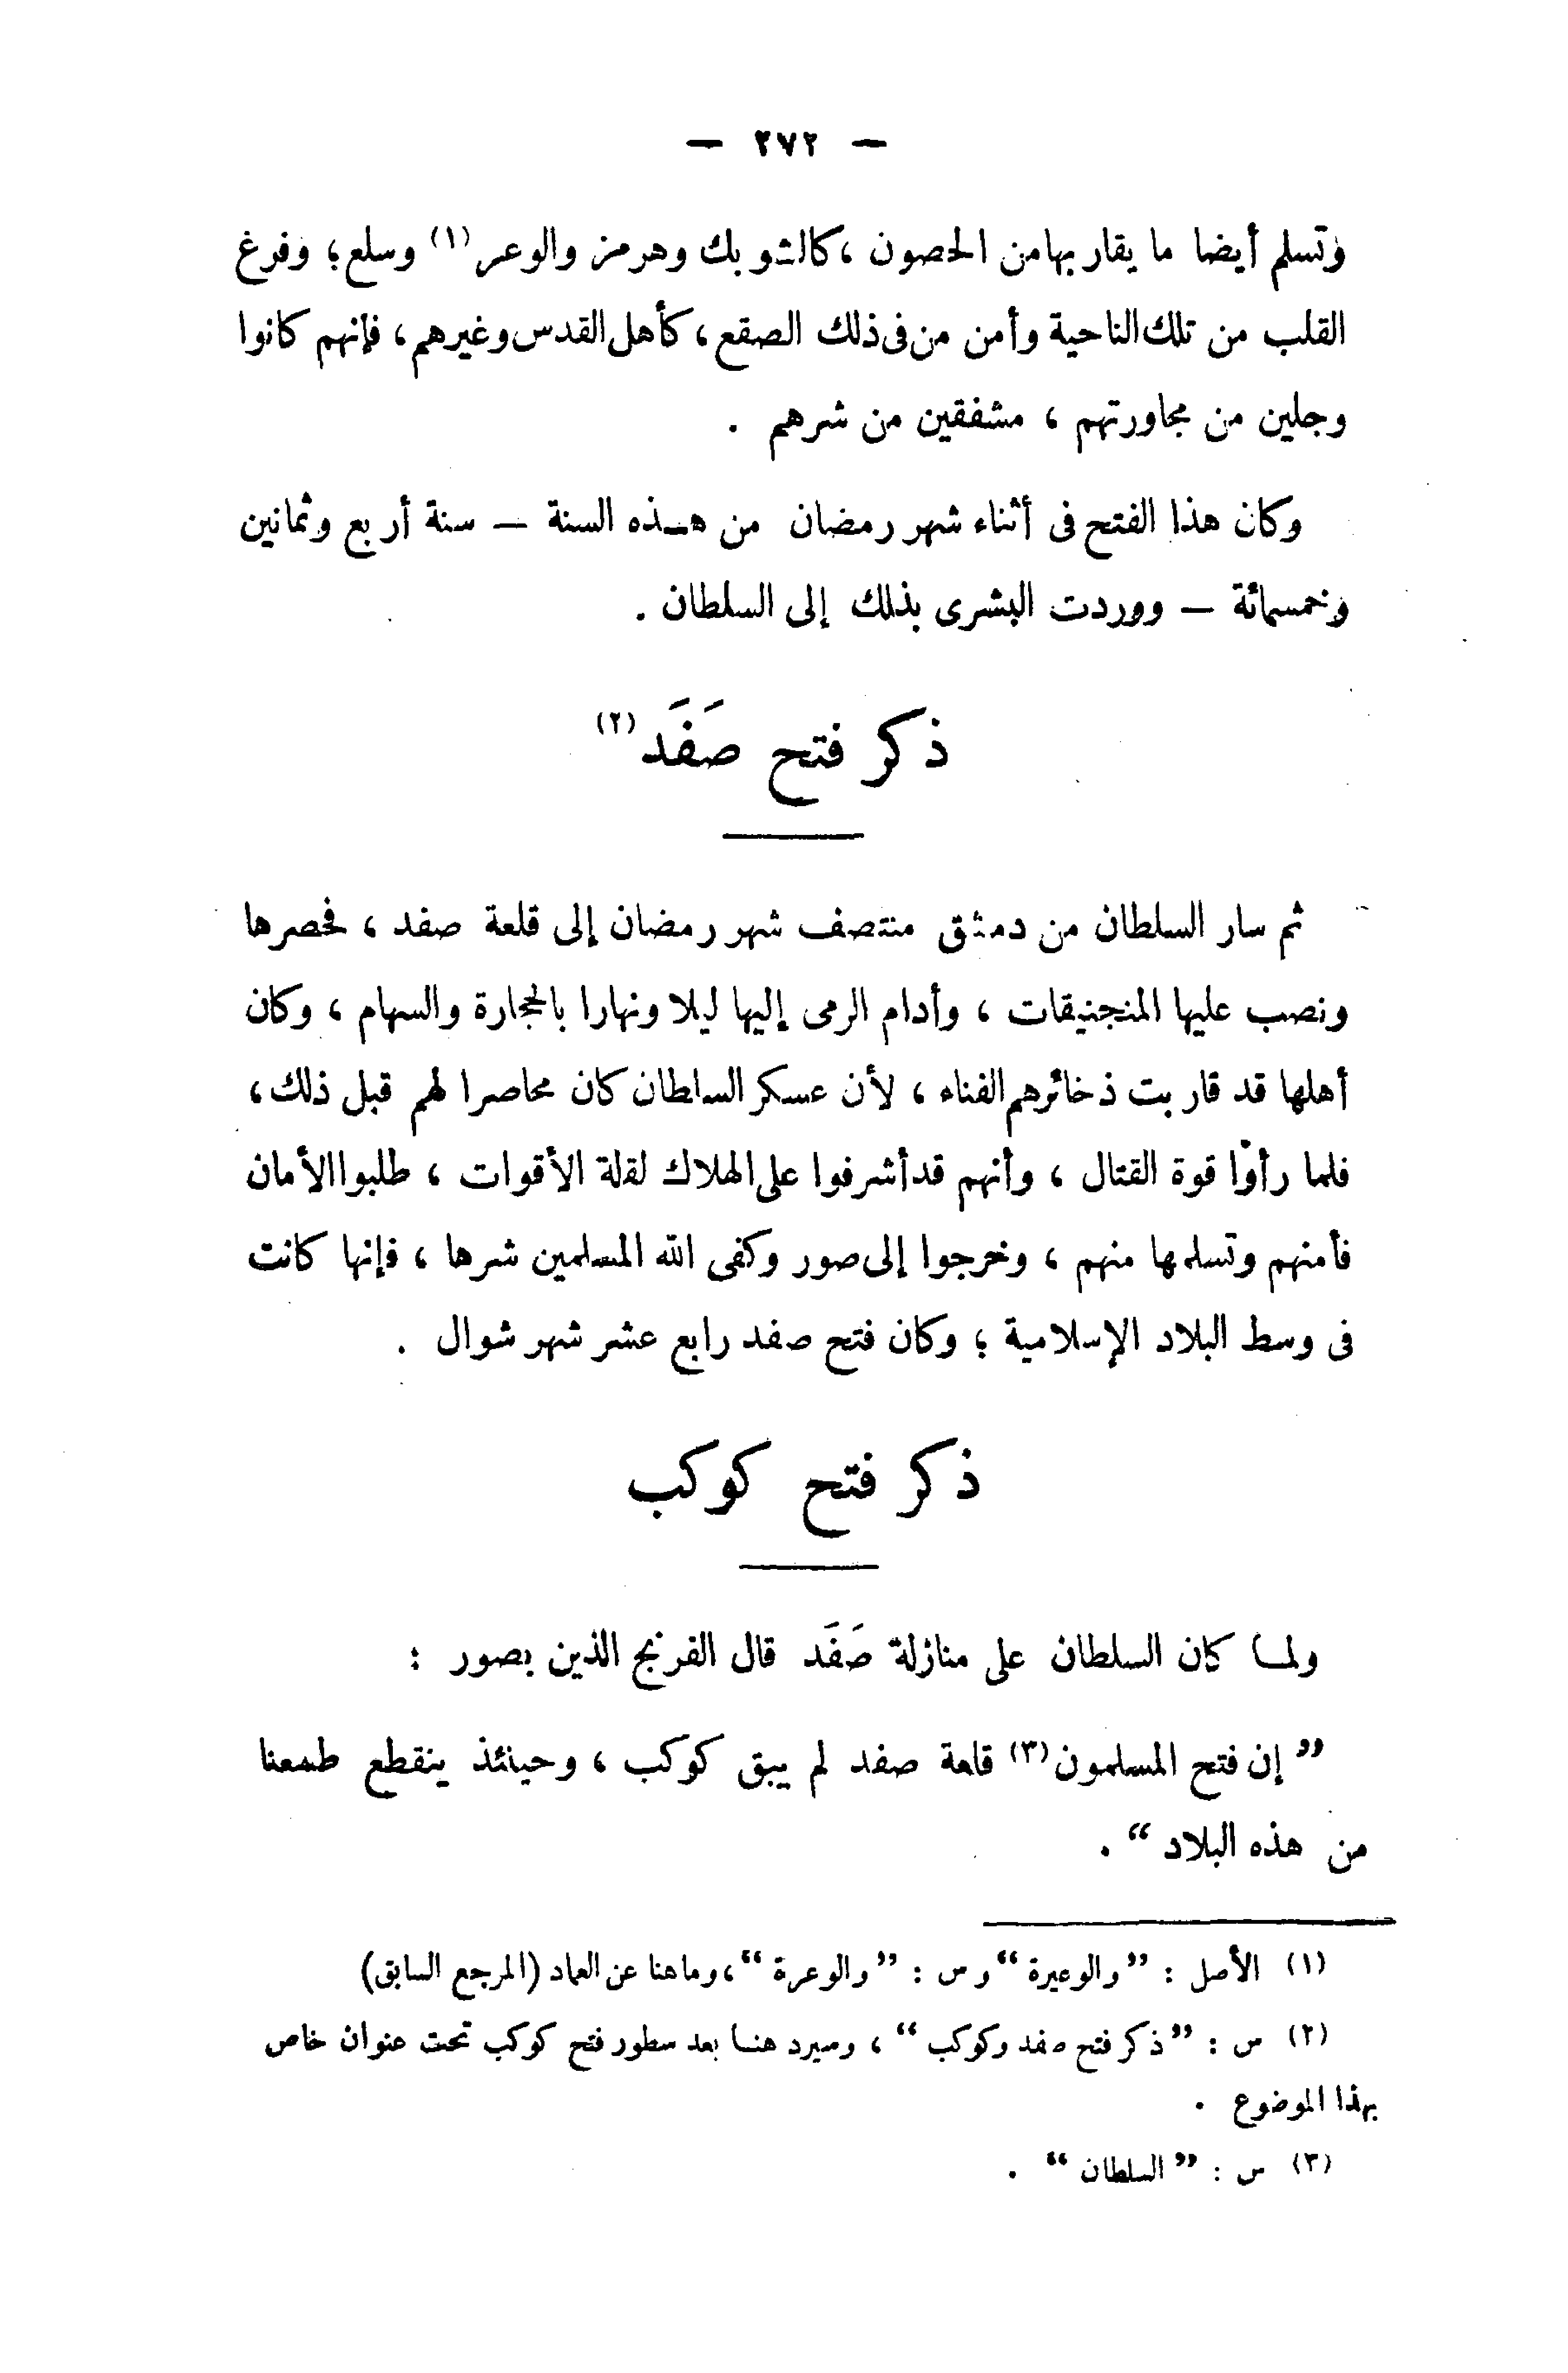 — ٢٧٢ —
وتسلم أيضا ما يقاربها من الحصون ، كالشوبك وهرمز والوعر(١) وسلع ؛ وفرغ
القلب من تلك الناحية وأمن من فى ذلك الصقع ، كأهل القدس وغيرهم ، فإنهم كانوا
وجلين من مجاورتهم ، مشفقين من شرهم .
وكان هذا الفتح فى أثناء شهر رمضان من هذه السنة — سنة أربع وثمانين
وخمسمائة — ووردت البشرى بذلك إلى السلطان .
ذكر فتح صَفَد(٢)
ثم سار السلطان من دمشق منتصف شهر رمضان إلى قلعة صفد ، فحصرها
ونصب عليها المنجنيقات ، وأدام الرمى إليها ليلا ونهارا بالحجارة والسهام ، وكان
أهلها قد قاربت ذخائرهم الفناء ، لأن عسكر السلطان كان محاصرا لهم قبل ذلك ،
فلما رأوا قوة القتال ، وأنهم قد أشرفوا على الهلاك لقلة الأقوات ، طلبوا الأمان
فأمنهم وتسلمها منهم ، وخرجوا إلى صور وكفى الله المسلمين شرها ، فإنها كانت
فى وسط البلاد الإسلامية ؛ وكان فتح صفد رابع عشر شهر شوال .
ذكر فتح كوكب
ولما كان السلطان على منازلة صَفَد قال الفرنج الذين بصور :
” إن فتح المسلمون(٣) قلعة صفد لم يبق كوكب ، وحينئذ ينقطع طمعنا
من هذه البلاد “ .
(١) الأصل : ” والوعيرة “ و س : ” والوعرة “ ، وما هنا عن العماد (المرجع السابق)
(٢) س : ” ذكر فتح صفد وكوكب “ ، وسيرد هنا بعد سطور فتح كوكب تحت عنوان خاص
بهذا الموضوع .
(٣) س : ” السلطان “ .